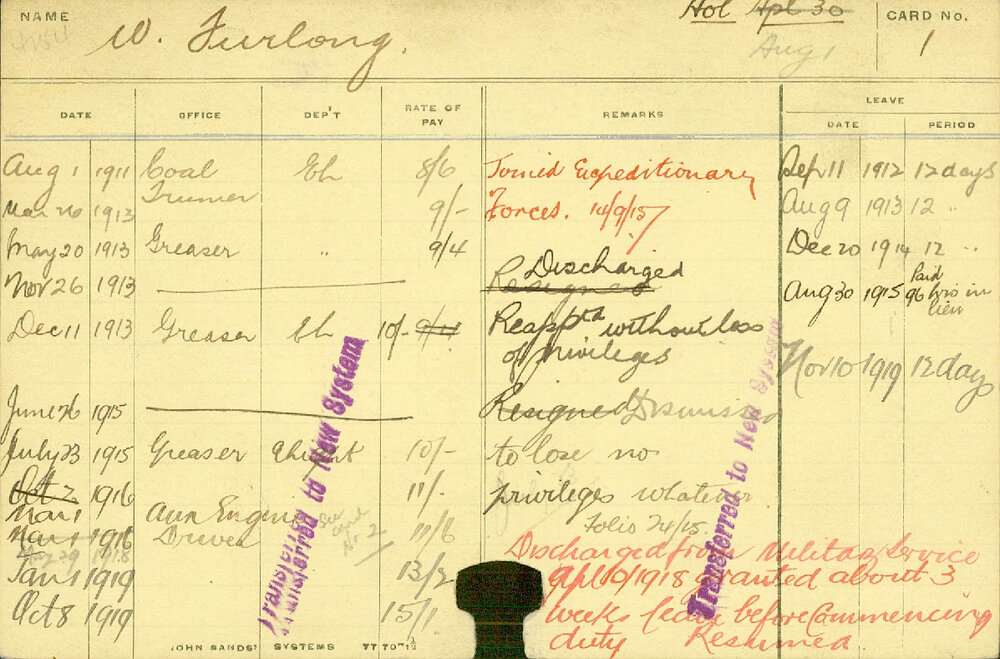 NAME W. Furlong. Hol Apl 30 CARD No.
Aug 1 1
LEAVE
DATE OFFICE DEP'T RATE OF PAY REMARKS DATE PERIOD
Aug 1 1911 Coal Eh 8/6 Joined Expeditionary Sep 11 1912 12 days
Trimer
Mar 26 1913 9/- Forces. 14/9/15 Aug 9 1913 12 "
May 20 1913 Greaser " 9/4 Dec 20 1914 12 "
Nov 26 1913 Discharged
Resigned Aug 30 1915 96 hrs in lieu Paid
Dec 11 1913 Greaser Eh 10/- 9/4 Reapptd without loss
of privileges Nov 10 1919 12 days
June 26 1915 Resigned Dismissed
July 23 1915 Greaser 10/- to lose no
Oct 2 1916 11/- privileges whatever
Mar 1 Aux Engine See card No 2 Folio 24/15
Mar 1 1916 Driver 11/6
Aug 29 1918 Discharged from Military Service
Jan 1 1919 13/2 Apl 10/1918 granted about 3
Oct 8 1919 15/1 weeks leave before Commencing
duty Resumed
Transferred to New System
Transferred to New System
JOHN SANDS' SYSTEMS